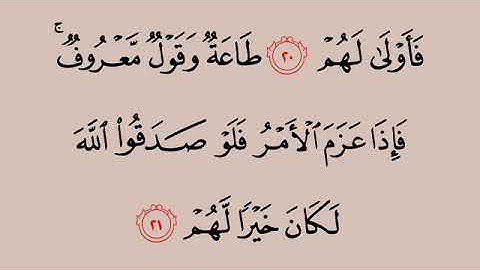 فَأَوْلَىٰ لَهُمْ ٢٠ طَاعَةٌ وَقَوْلٌ مَّعْرُوفٌ ۚ
فَإِذَا عَزَمَ ٱلْأَمْرُ فَلَوْ صَدَقُوا۟ ٱللَّهَ
لَكَانَ خَيْرًا لَّهُمْ ٢١